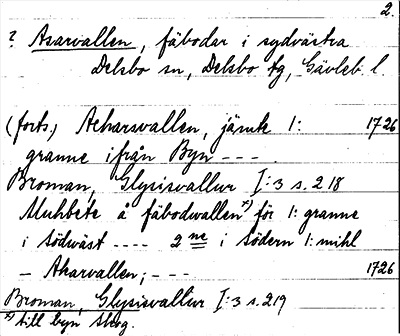 2.
? Asarvallen, fäbodar i sydvästra
Delsbo sn, Delsbo tg, Gävleb. l.
(forts.) Acharsvallen, jämte 1: 1726
granne ifrån Byn - - - .
Broman, Glysisvallur I:3 s. 218
Muhbete å fäbodwallen *) för 1: granne
i Södwäst - - - - 2 ne i södern 1: mihl
– Akarvallen; - - - 1726
Broman, Glysisvallur I:3 s. 219
*) till byn